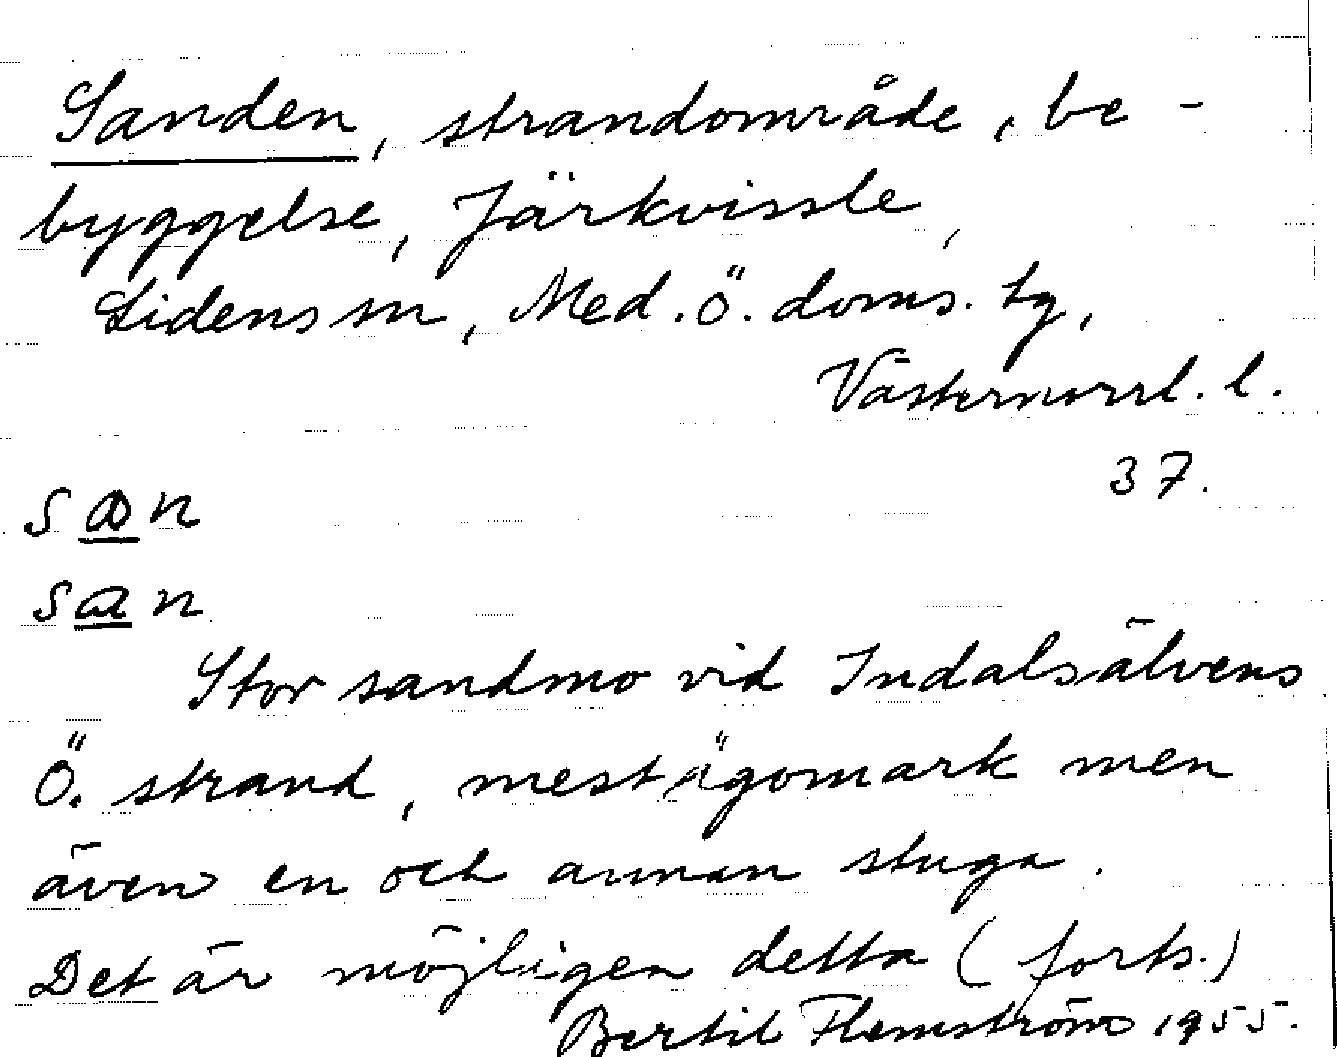 Sanden, strandområde, be-
byggelse, Järkvissle,
Lidens sn, Med. Ö. doms. tg,
Västernorrl. l.
37.
Stor sandmo vid Indalsälvens
Ö. strand, mest ägomark men
även en och annan stuga.
Det är möjligen detta (forts.)
Bertil Flemström 1955.